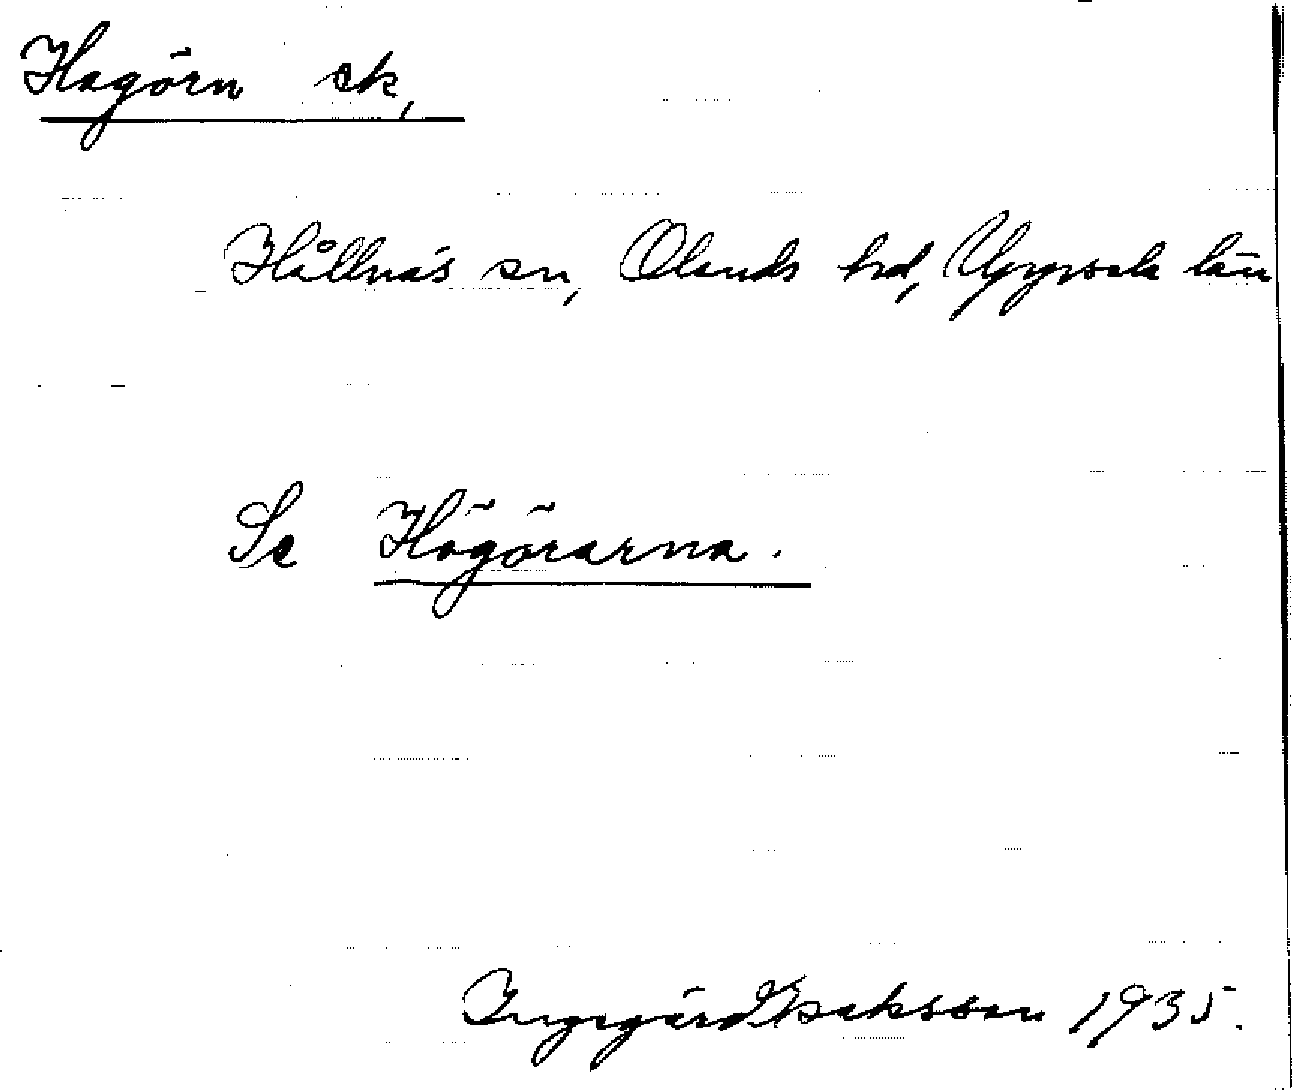 Hagörn sk,
Hållnäs sn, Olands hd, Uppsala län
Se Högörarna.
Ingegärd Isaksson 1935.